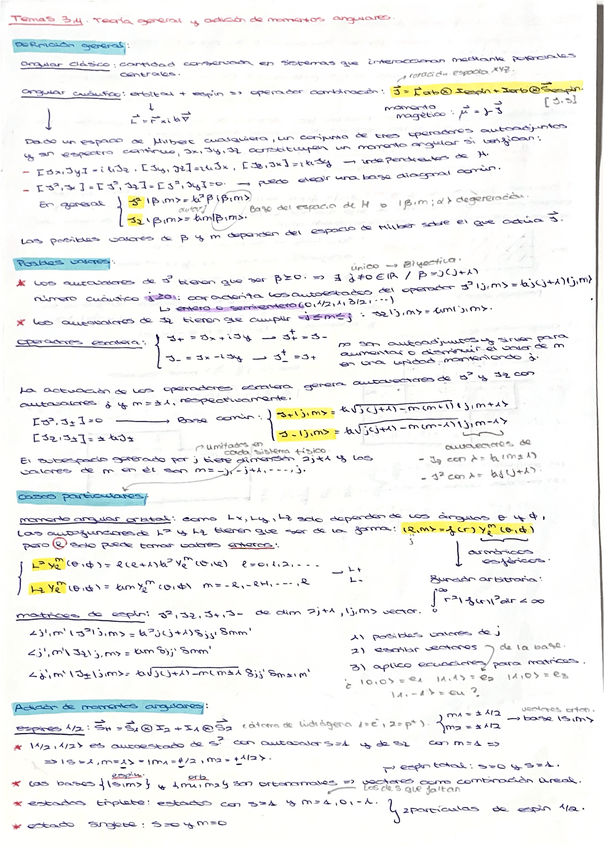 Temas 3,4. Teoría general y adición de momentos angulares.
Definición general:
angular clásico: cantidad conservada en sistemas que interaccionan mediante potenciales centrales.
rotación espacio XYZ.
angular cuántico: orbital + espín => operador combinación: J = Lorb ⊗ Iespin + Iorb ⊗ Sespin.
momento magético: μ = γJ
Dado un espacio de Hilbert cualquiera, un conjunto de tres operadores autoadjuntos
y con espectro continuo, Jx, Jy, Jz constituyen un momento angular si verifican:
- [Jx,Jy] = iħJz, [Jy,Jz] = iħJx, [Jz,Jx] = iħJy → independientes de H.
- [J²,Jx] = [J²,Jz] = [J²,Jy] = 0. → puedo elegir una base diagonal común.
En general { J²|β,m> = ħ²β|β,m>
Jz|β,m> = ħm|β,m>.
Base del espacio de H o |β,m;α> degeneración.
Los posibles valores de β y m dependen del espacio de Hilbert sobre el que actúa J.
Posibles valores:
único → Biyectiva.
* Los autovalores de J² tienen que ser β≥0. => ∃ j≥0∈ℝ / β=j(j+1)
número cuántico j≥0: caracteriza los autoestados del operador J²|j,m> = ħ²j(j+1)|j,m>
↳ entero o semientero (0, 1/2, 1, 3/2, ...)
* Los autovalores de Jz tienen que cumplir -j≤m≤j : Jz|j,m> = ħm|j,m>.
Operadores escalera: { J+ = Jx+iJy → J+† = J-
J- = Jx-iJy → J-† = J+
no son autoadjuntos y sirven para
aumentar o disminuir el valor de m
en una unidad, manteniendo j.
La actuación de los operadores escalera genera autovectores de J² y Jz con
autovalores j y m±1, respectivamente.
[J²,J±] = 0 → Base común: { J+|j,m> = ħ√j(j+1)-m(m+1) |j,m+1>
[Jz,J±] = ±ħJ± J-|j,m> = ħ√j(j+1)-m(m-1) |j,m-1>
limitados en cada sistema físico
El subespacio generado por j tiene dimensión 2j+1 y los
valores de m en él son m = -j, -j+1, ..., j.
autovectores de
- Jz con λ = ħ(m±1)
- J² con λ = ħ²j(j+1).
Casos particulares:
momento angular orbital: como Lx, Ly, Lz solo dependen de los ángulos θ y ϕ,
las autofunciones de L² y Lz tienen que ser de la forma: |ℓ,m> = f(r) Yℓm(θ,ϕ)
pero ℓ solo puede tomar valores enteros:
armónicos esféricos.
{ L² Yℓm(θ,ϕ) = ℓ(ℓ+1)ħ² Yℓm(θ,ϕ) ℓ=0,1,2,... → L+
Lz Yℓm(θ,ϕ) = ħm Yℓm(θ,ϕ) m=-ℓ,-ℓ+1,...,ℓ L-
función arbitraria:
∫0∞ r²|f(r)|² dr < ∞
matrices de espín: J², Jz, J+, J- de dim 2j+1, |j,m> vector.
<j',m'|J²|j,m> = ħ²j(j+1) δjj' δmm'
<j',m'|Jz|j,m> = ħm δjj' δmm'
<j',m'|J±|j,m> = ħ√j(j+1)-m(m±1) δjj' δm±1,m'
1) posibles valores de j
2) escribir vectores de la base.
3) aplico ecuaciones para matrices.
¿ |0,0> = e1 |1,1> = e2 |1,0> = e3
|1,-1> = e4 ?
Adición de momentos angulares:
espines 1/2: S = S1 ⊗ I2 + I1 ⊗ S2 (átomo de hidrógeno 1=e⁻, 2=p⁺). { m1 = ±1/2
m2 = ±1/2
→ base |S,m>
* |1/2,1/2> es autoestado de S² con autovalor s=1 y de Sz con m=1 =>
=> |S=1,m=1> = |m1=1/2, m2=+1/2>.
→ espín total: s=0 y s=1.
* Las bases {|S,m>} y {m1,m2} son ortonormales => vectores como combinación lineal.
Los de s que faltan
* estados triplete: estados con s=1 y m=1,0,-1.
* estado singlete: s=0 y m=0
} 2 partículas de espín 1/2.